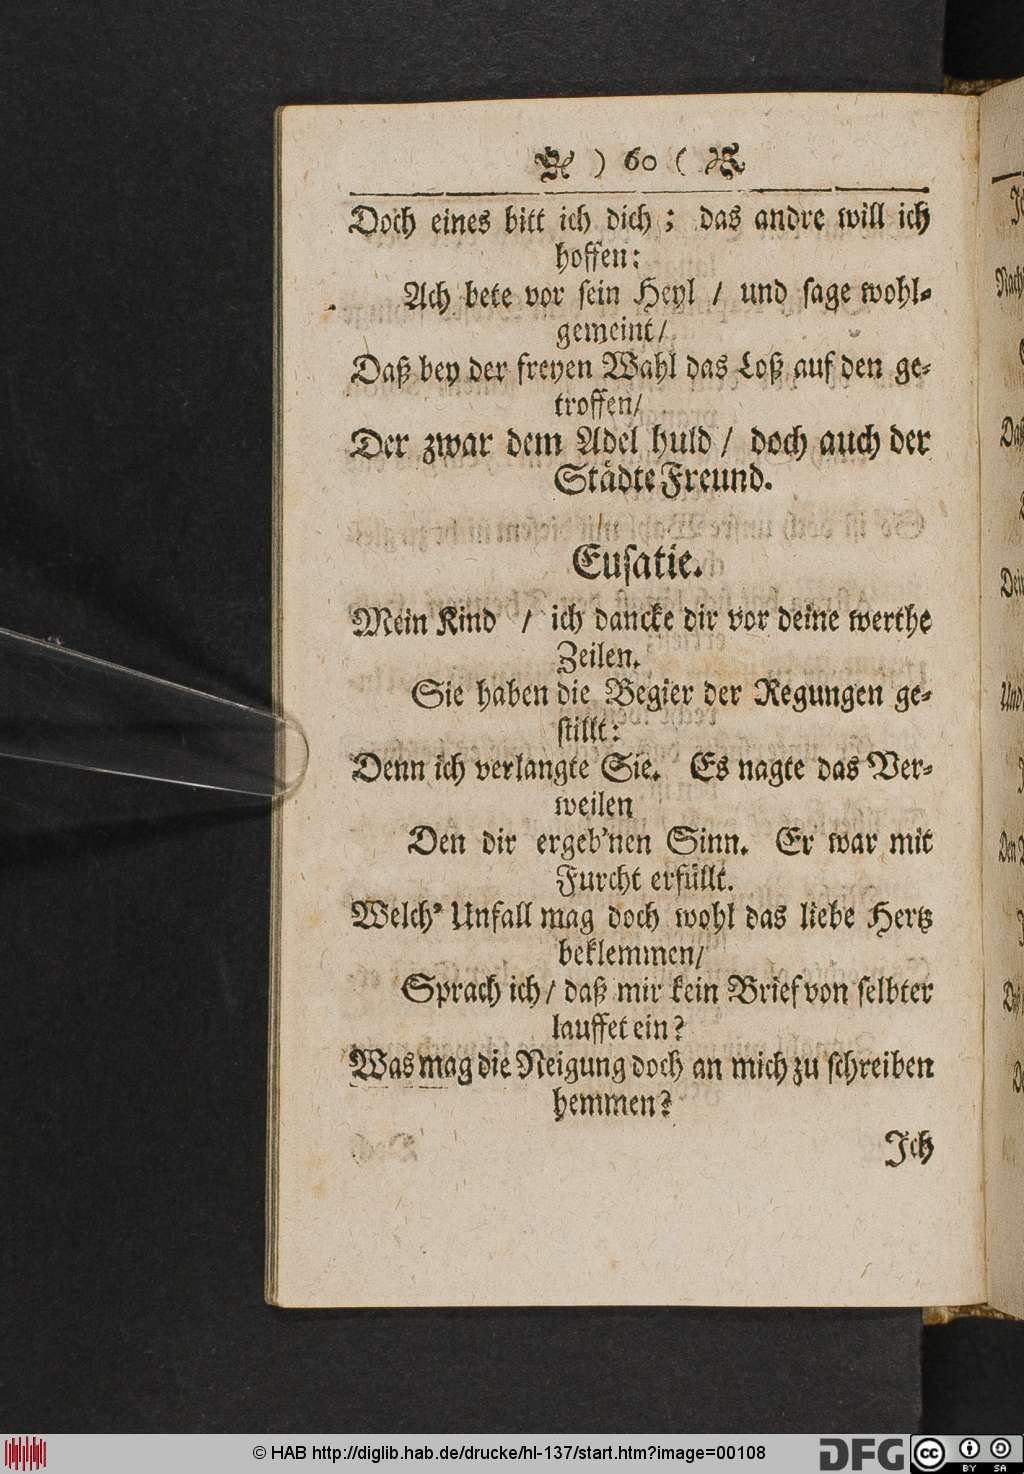 ) 60 (
Doch eines bitt ich dich ; das andre will ich
hoffen:
Ach bete vor sein Heyl / und sage wohl-
gemeint/
Daß bey der freyen Wahl das Loß auf den ge-
troffen/
Der zwar dem Adel huld / doch auch der
Städte Freund.
Eusatie.
Mein Kind / ich dancke dir vor deine werthe
Zeilen.
Sie haben die Begier der Regungen ge-
stillt:
Denn ich verlangte Sie. Es nagte das Ver-
weilen
Den dir ergeb'nen Sinn. Er war mit
Furcht erfüllt.
Welch' Unfall mag doch wohl das liebe Hertz
beklemmen/
Sprach ich/ daß mir kein Brief von selbter
lauffet ein?
Was mag die Neigung doch an mich zu schreiben
hemmen?
Ich
© HAB http://diglib.hab.de/drucke/hl-137/start.htm?image=00108
DFG
cc
BY SA